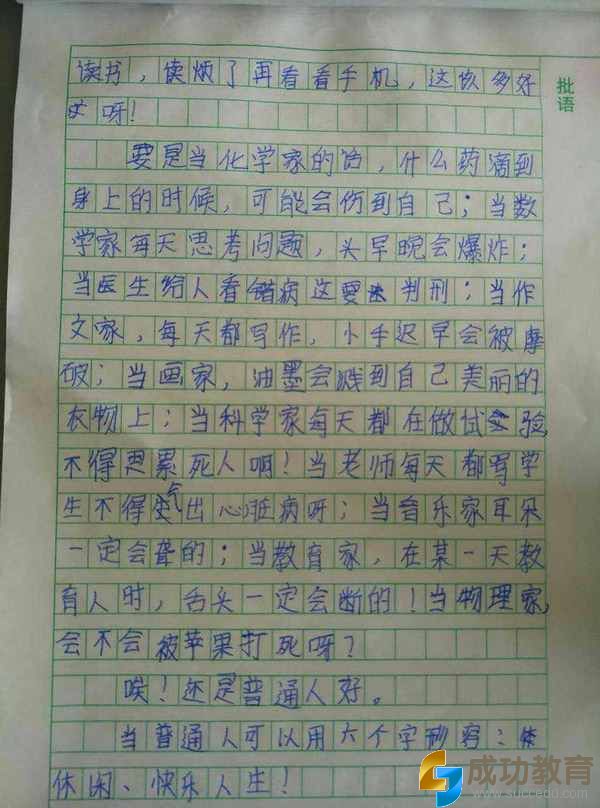 读书，读烦了再看看手机，这依多好
丈呀！
要是当化学家的饴，什么药滴到
身上的时候，可能会伤到自己；当数
学家每天思考问题，头早晚会爆炸；
当医生给人看错病这要判刑；当作
文家，每天都写作，小手迟早会被摩
破；当画家，油墨会溅到自己美丽的
衣物上；当科学家每天都在做试验，
不得思累死人啊！当老师每天都写学
生不得气出心脏病呀；当音乐家耳朵
一定会聋的；当教育家，在某一天教
育人时，舌头一定会断的！当物理家，
会不会被苹果打死呀？
唉！还是普通人好。
当普通人可以用六个字形容：休
休闲、快乐人生！
批语
成功教育
www.succedu.com